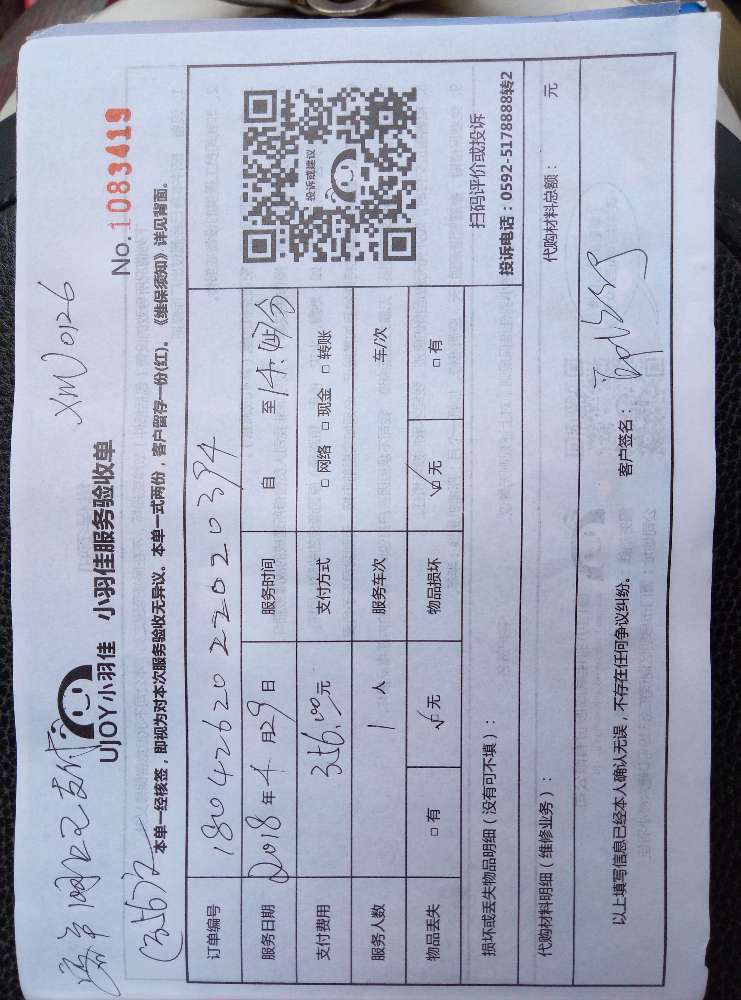 网上已支付
(356元)
XM0126
UJOY小羽佳 小羽佳服务验收单
No.1083419
本单一经核签，即视为对本次服务验收无异议。本单一式两份，客户留存一份(红)。《维保须知》详见背面。
订单编号 180426202202 0394
服务日期 2018年4月29日 服务时间 自 至14:
支付费用 356.00元 支付方式 □网络 □现金 □转账
服务人数 1人 服务车次 车/次
物品丢失 □有 ☑无 物品损坏 ☑无 □有
投诉或建议
扫码评价或投诉
投诉电话：0592-5178888转2
损坏或丢失物品明细（没有可不填）：
代购材料明细（维修业务）： 代购材料总额： 元
以上填写信息已经本人确认无误，不存在任何争议纠纷。 客户签名：